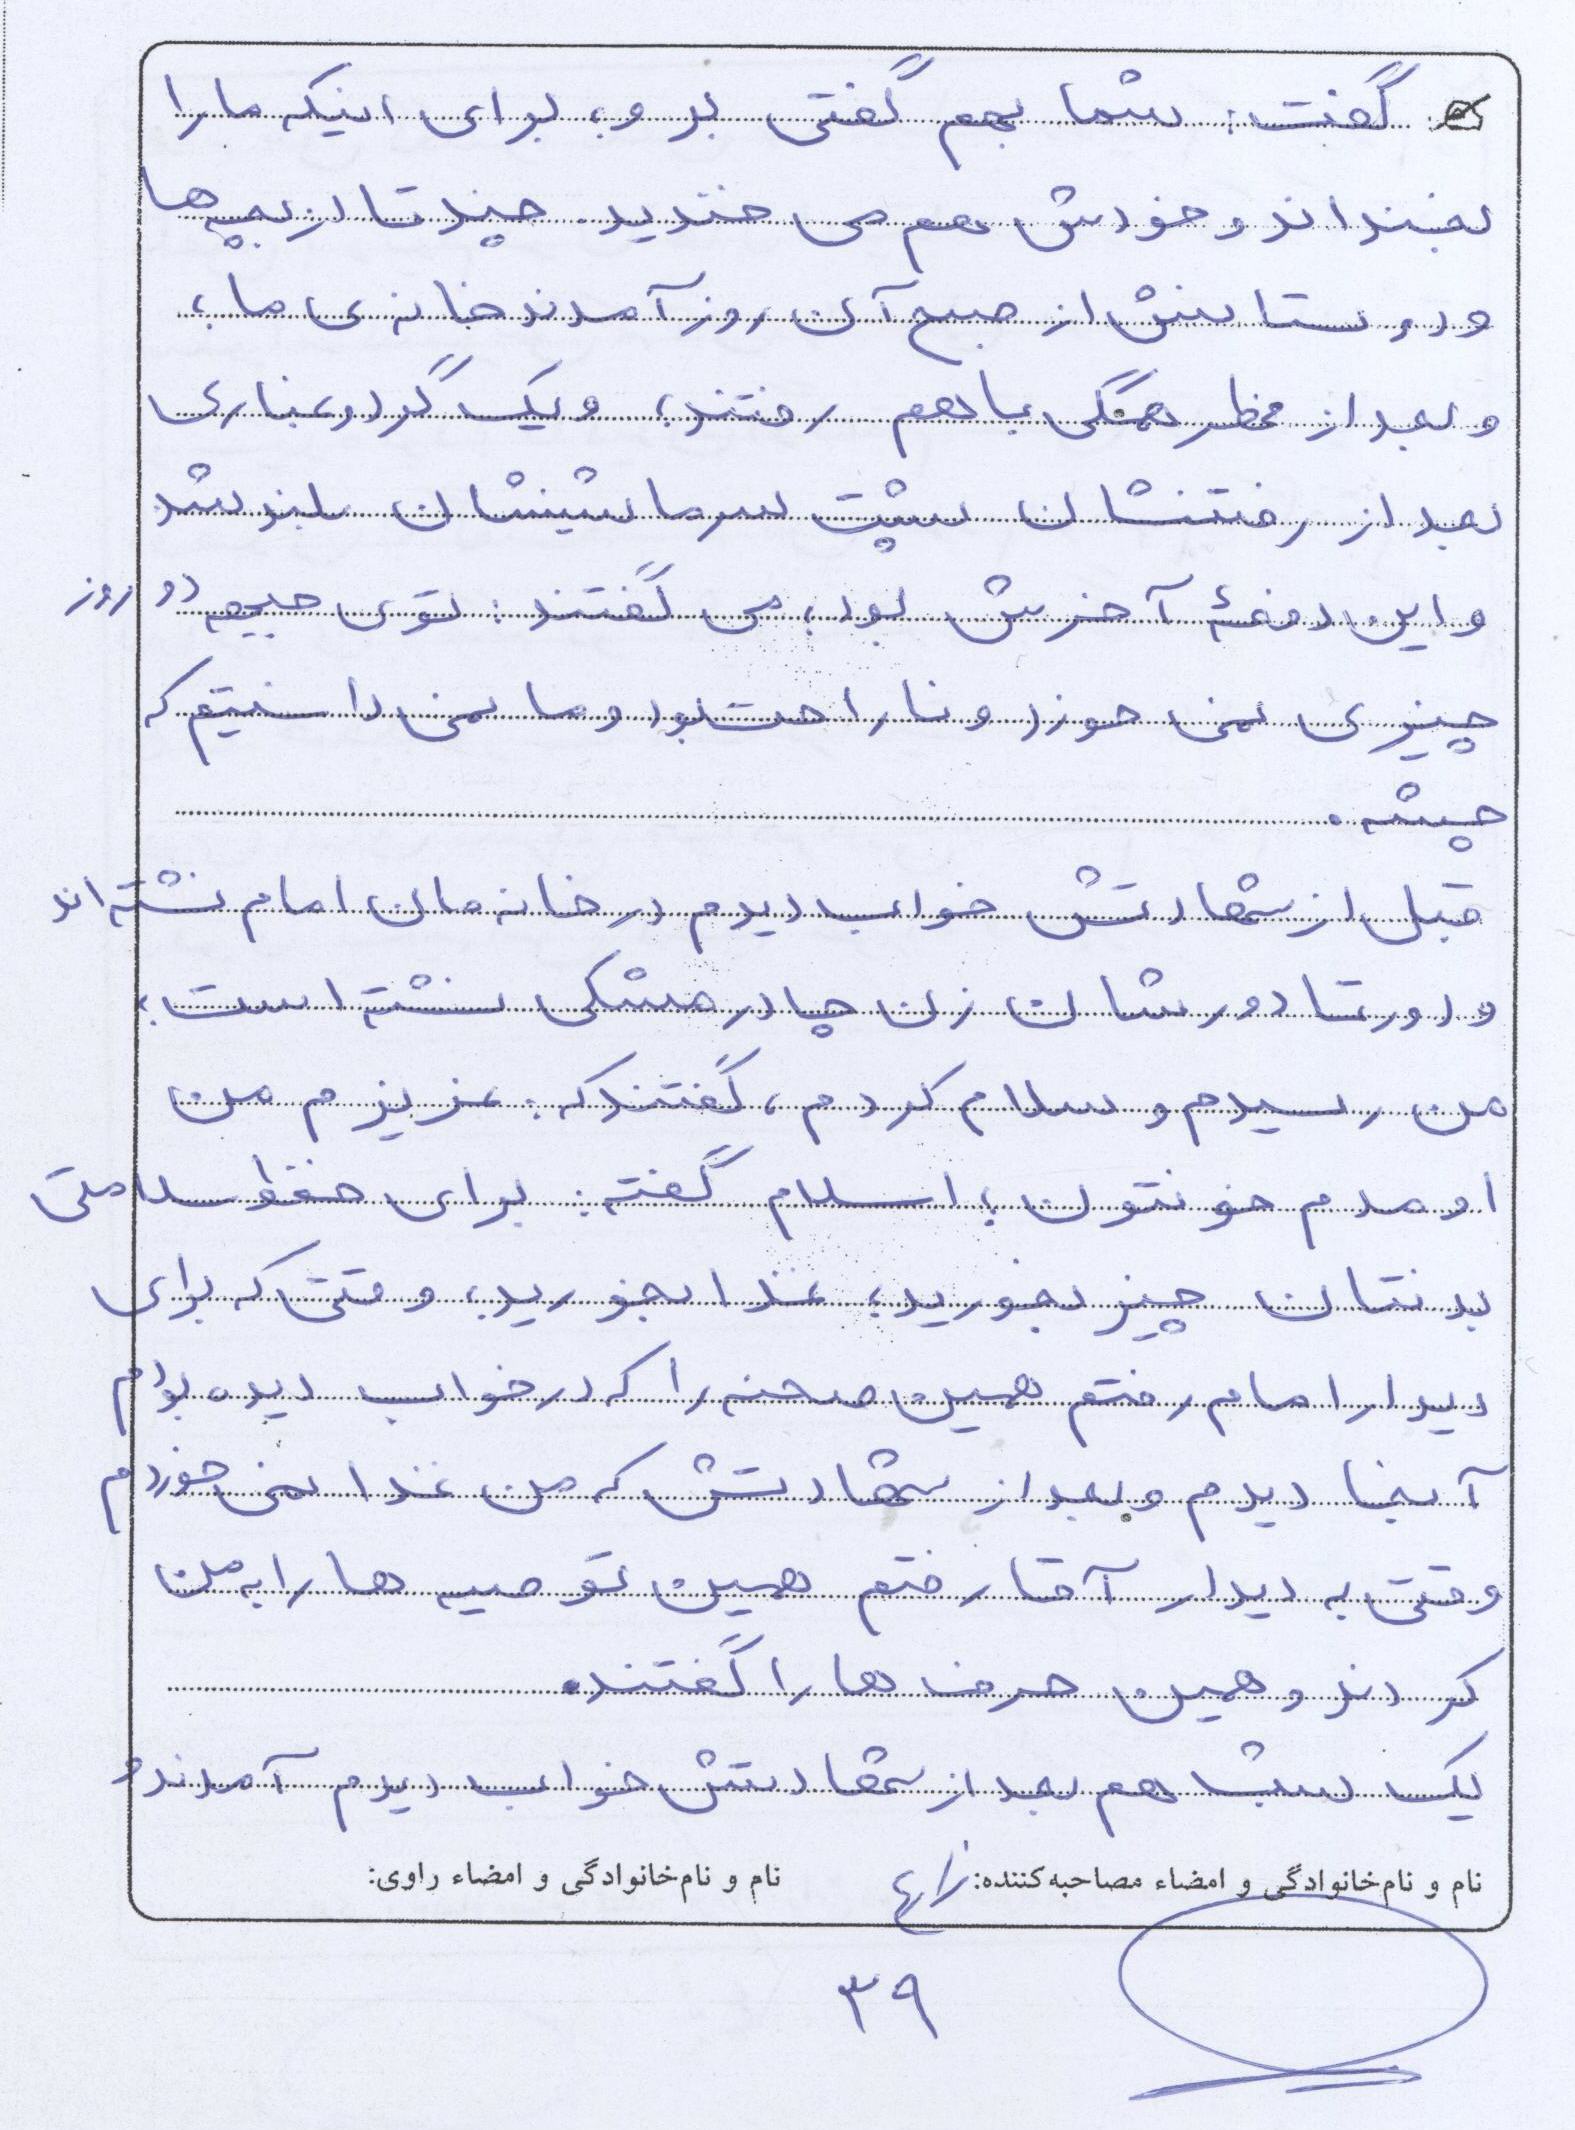 گفت: شما بهم گفتی برو، برای اینکه ما را
بخنداند و خودش هم می خندید. چند تا از بچه ها
و دوستانش از صبح آن روز آمدند خانه ی ما،
و بعد از ظهر همگی با هم رفتند، و یک گرد و غباری
بعد از رفتنشان پشت سر ماشینشان بلند شد
و این دفعهٔ آخرش بود، می گفتند: توی جبهه دو روز
چیزی نمی خورد و ناراحت بود و ما نمی دانستیم که
چیشه.
قبل از شهادتش خواب دیدم در خانه مان امام نشسته اند
و دور تا دورشان زن چادر مشکی نشسته است،
من رسیدم و سلام کردم، گفتند که: عزیزم من
اومدم خونتون؛ اسلام گفته: برای حفظ سلامتی
بدنتان چیز بخورید، غذا بخورید، وقتی که برای
دیدار امام رفتم همین صحنه را که در خواب دیده بودم
آنجا دیدم و بعد از شهادتش که من غذا نمی خوردم
وقتی به دیدار آقا رفتم همین توصیه ها را به من
کردند و همین حرف ها را گفتند.
یک شب هم بعد از شهادتش خواب دیدم آمدند و
نام و نام‌خانوادگی و امضاء مصاحبه‌کننده: نام و نام‌خانوادگی و امضاء راوی:
۳۹